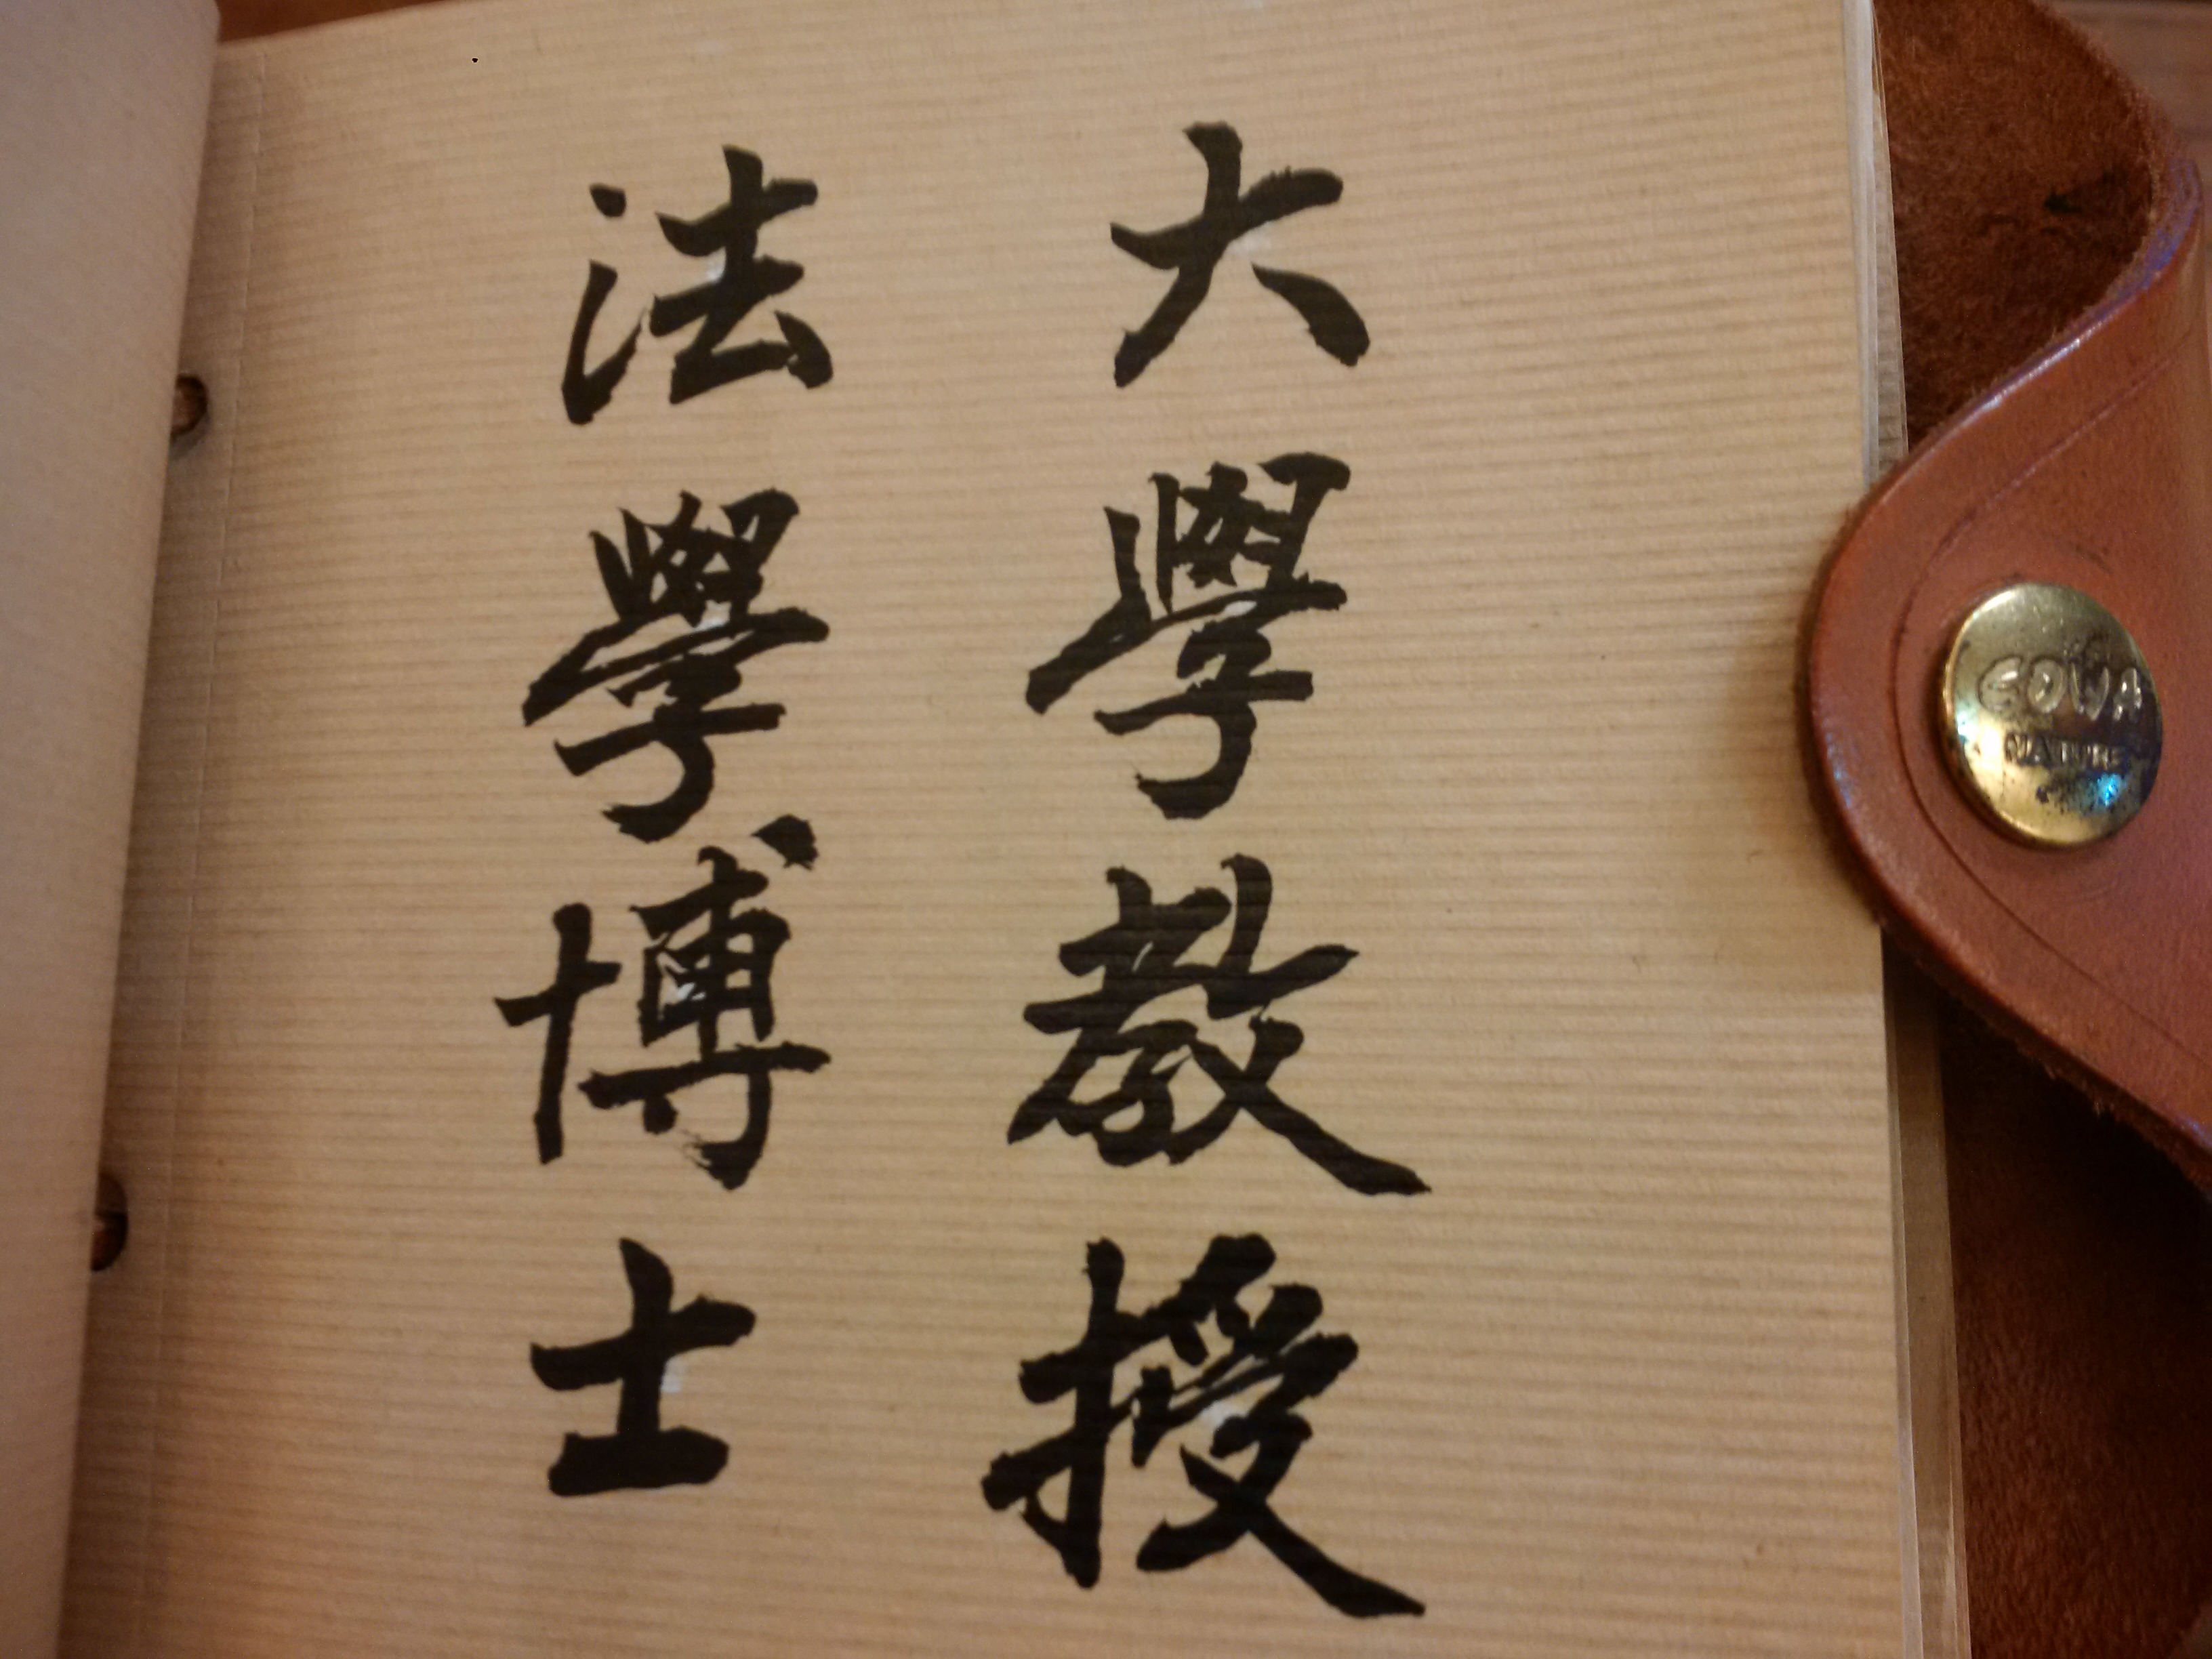 大學教授
法學博士
GOWA
NATURE